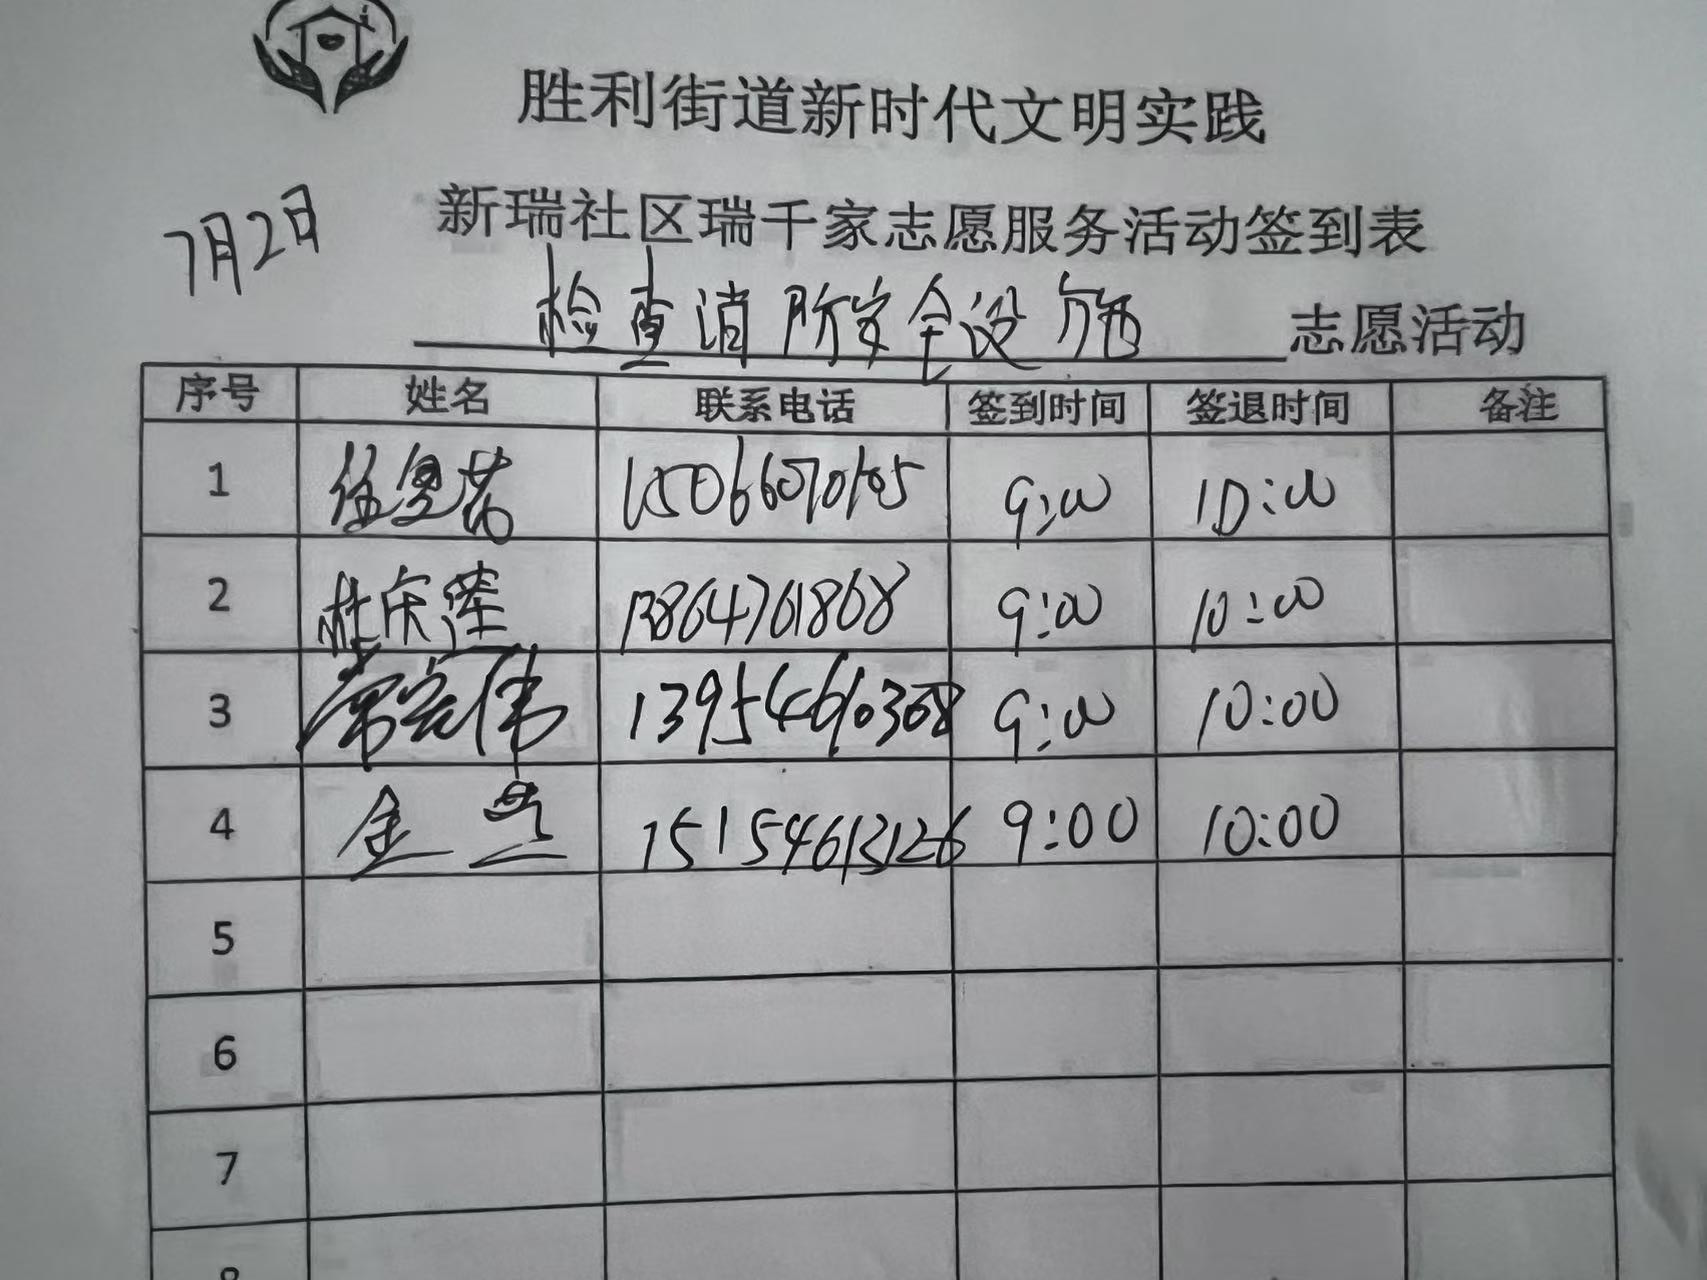 胜利街道新时代文明实践
7月2日 新瑞社区瑞千家志愿服务活动签到表
检查消防安全设施 志愿活动
序号 姓名 联系电话 签到时间 签退时间 备注
1 9:00 10:00
2 杜庆 13864761868 9:00 10:00
3 常宏伟 13954690308 9:00 10:00
4 金 15154613126 9:00 10:00
5
6
7
8